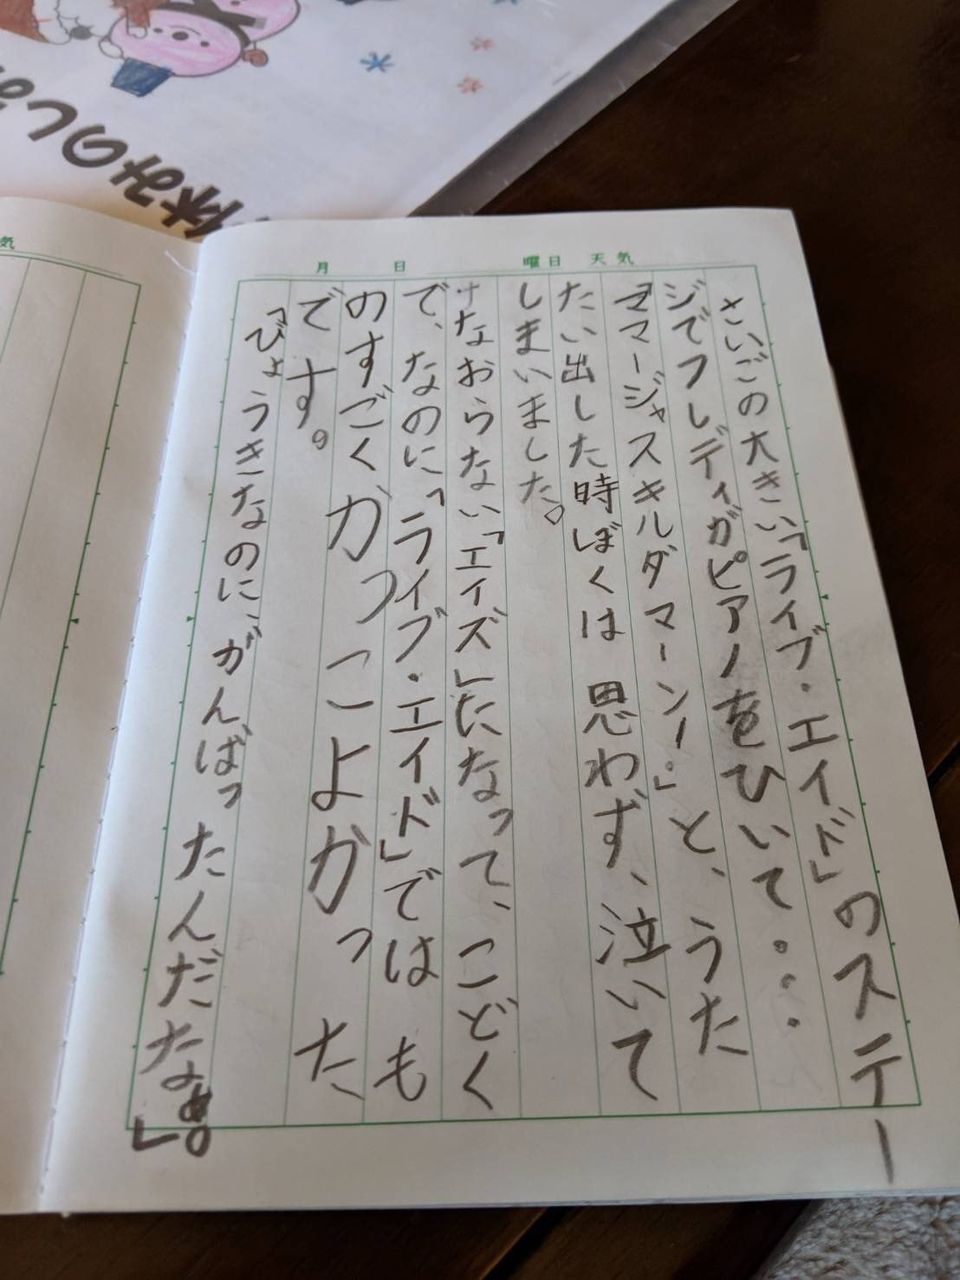 休みのし
気
月 日 曜日 天気
さいごの大きい「ライブ・エイド」のステー
ジでフレディがピアノをひいて・・・
「ママージャスキルダマーン!。」と、うた
たい出した時ぼくは思わず、泣いて
しまいました。
けなおらない「エイズ」たなって、こどく
で、なのに「ライブ・エイド」ではも
のすごくかっこよかった
です。
「びょうきなのに、がんばったんだなぁ。」